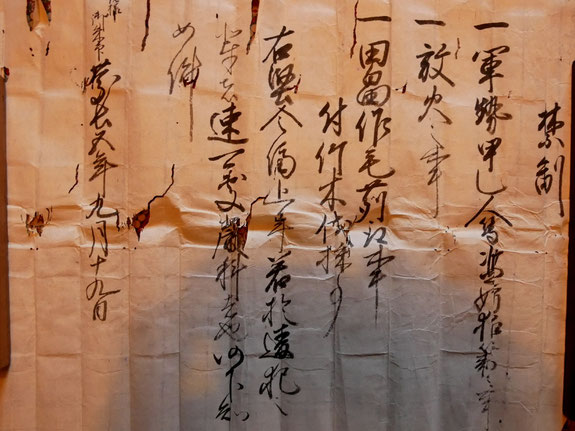 禁制
一軍勢甲乙人等濫妨狼藉之事
一放火之事
一田畠作毛苅取事
付竹木伐採事
右堅令停止畢若於違犯之
輩者速可處嚴科者也仍下知
如件
慶長五年九月十九日